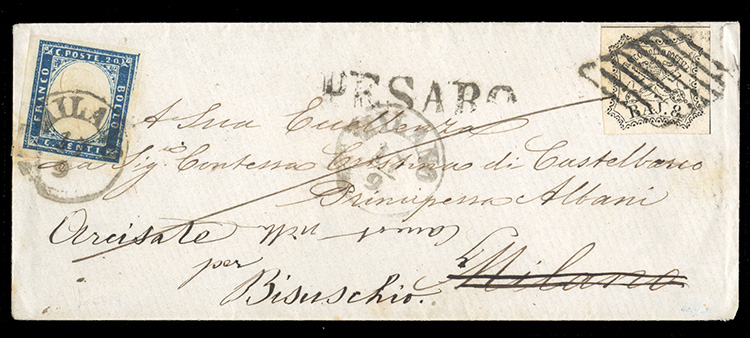 C. POSTE 20
FRANCO
BOLLO
C. VENTI
MILA
PESARO
BAJ. 8
A Sua Eccellenza
la Sig.ra Contessa Cristina di Castelbarco
Principessa Albani
Arcisate
per
Bisuschio.
Milano